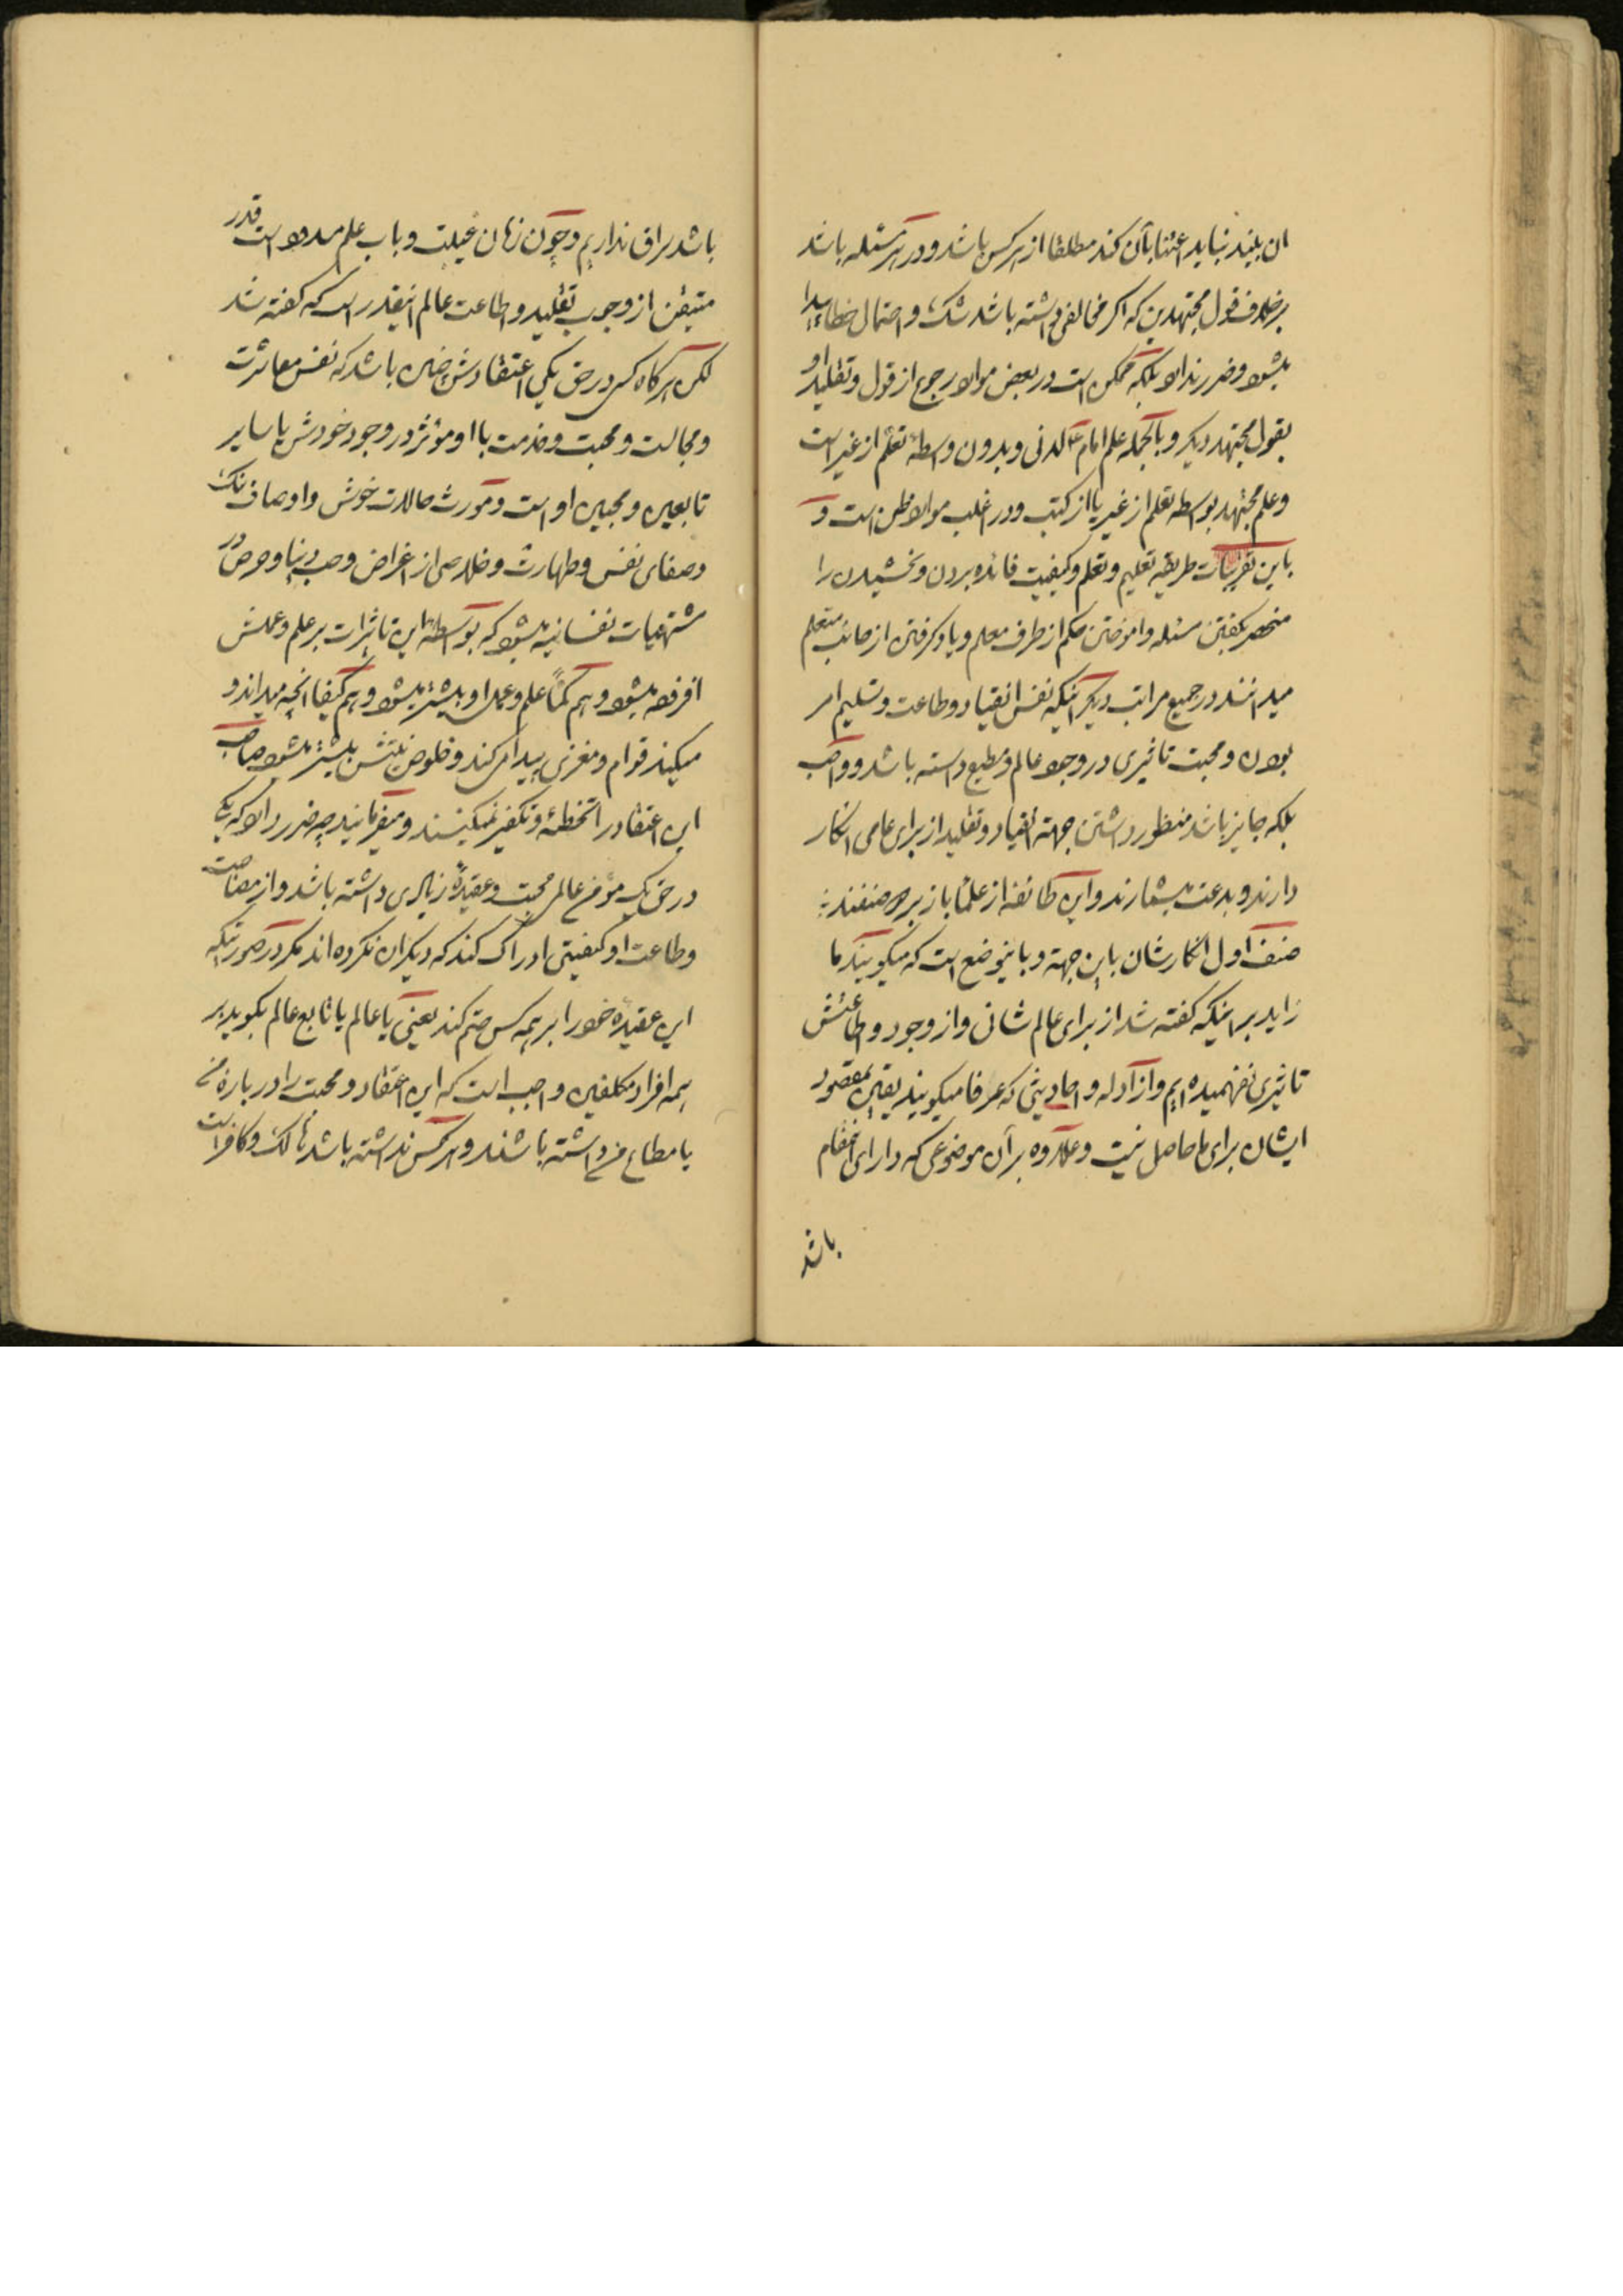 ان بلیند نباید اعتنا بآن کند مطلقا از هر کس باشد و در هر مسئله باشد
برخلاف قول مجتهدین که اکر مخالفی داشته باشد شک و احتمال خطاء پیدا
میشود و ضرر ندارد بلکه ممکن است در بعض موارد رجوع از قول و تقلید او
بقول مجتهد دیکر و بالجمله علم امام ع لدنی و بدون واسطهٔ تعلّم از غیر است
و علم مجتهد بواسطه تعلم از غیر یا از کتب و در اغلب موارد ظنی است و
باین تقریبات طریقه تعلیم و تعلم و کیفیت فائده بردن و بخشیدن را
منحصر بکفتن مسئله و اموختن حکم از طرف معلم و یاد کرفتن از جانب متعلم
میدانند در جمیع مراتب دیکر اینکه نفس انقیاد و طاعت و تسلیم امر
بودن و محبت تاثیری در وجود عالم و مطیع داسته باشد و واجب
بلکه جایز باشد منظور داشتن جهته انقیاد و تقلید از برای عامی انکار
دارند و بدعت میشمارند و این طائفه از علما باز بر دو صنفند :
صنف اول انکارشان باین جهته و باینوضع است که میکویند ما
زاید بر اینکه کفته شد از برای عالم شانی و از وجود و طاعتش
تاثیری نفهمیده ایم و از آدله و احادیثی که عرفا میکویند یقین بمقصود
ایشان برای ما حاصل نیست و علاوه بر آن موضوعی که دارای انمقام
باشد
باشد سراق نداریم و چون زمان غیبت و باب علم مسدود است قدر
متیقن از وجوب تقلید و اطاعت عالم اینقدر است که کفته شد
لکن هرکاه کسی در حق یکی اعتقادش چنین باشد که نفس معاشرت
و مجالست و محبت و خدمت باا و مؤثر در وجود خودش یا سایر
تابعین و محبین او است و مورث حالات خوش و اوصاف نیک
و صفای نفس و طهارت و خلاصی از اغراض و حب دنیا و حرص در
مشتهیات نفسانیه میشود که بواسطهٔ این تاثیرات بر علم و عملش
افزوده میشود و هم کمّاً علم و عمل او بیشتر میشود و هم کیفا انچه میداند و
میکند قوام و مغزی پیدا می کند و خلوص نیتش بیشتر میشود صاحب
این اعتقاد را تخطئه و تکفیر نمیکنند و میفرمایند چه ضرر دارد که یکی
در حق یک مؤمن عالمی محبت و عقیدهٔ زیادی داشته باشد و از مصاحبت
و طاعت او کیفیتی ادراک کند که دیکران نکرده اند مکر در صورتیکه
این عقیدهٔ خود را بر همه کس حتم کند یعنی یا عالم یا تابع عالم بکوید بر
همه افراد مکلفین واجب است که این اعتقاد و محبت را در بارهٔ من
یا مطاع من داشته باشند و هر کس نداشته باشد هالک و کافر است